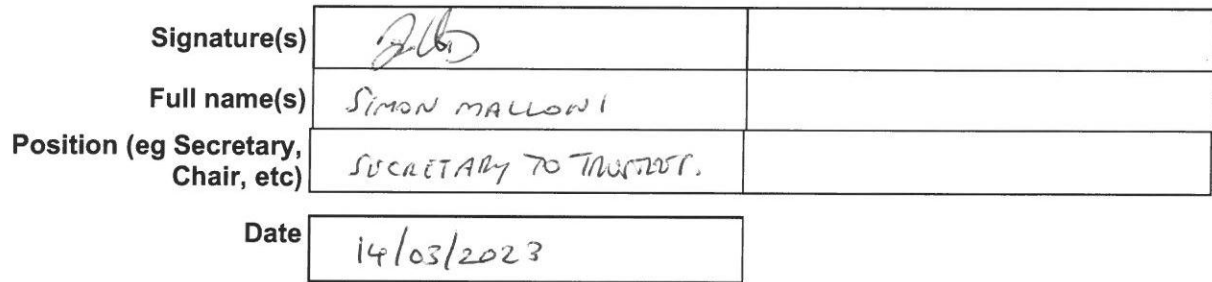 Signature(s)
Full name(s) SIMON MALLONI
Position (eg Secretary,
Chair, etc) SECRETARY TO TRUSTEES.
Date 14/03/2023